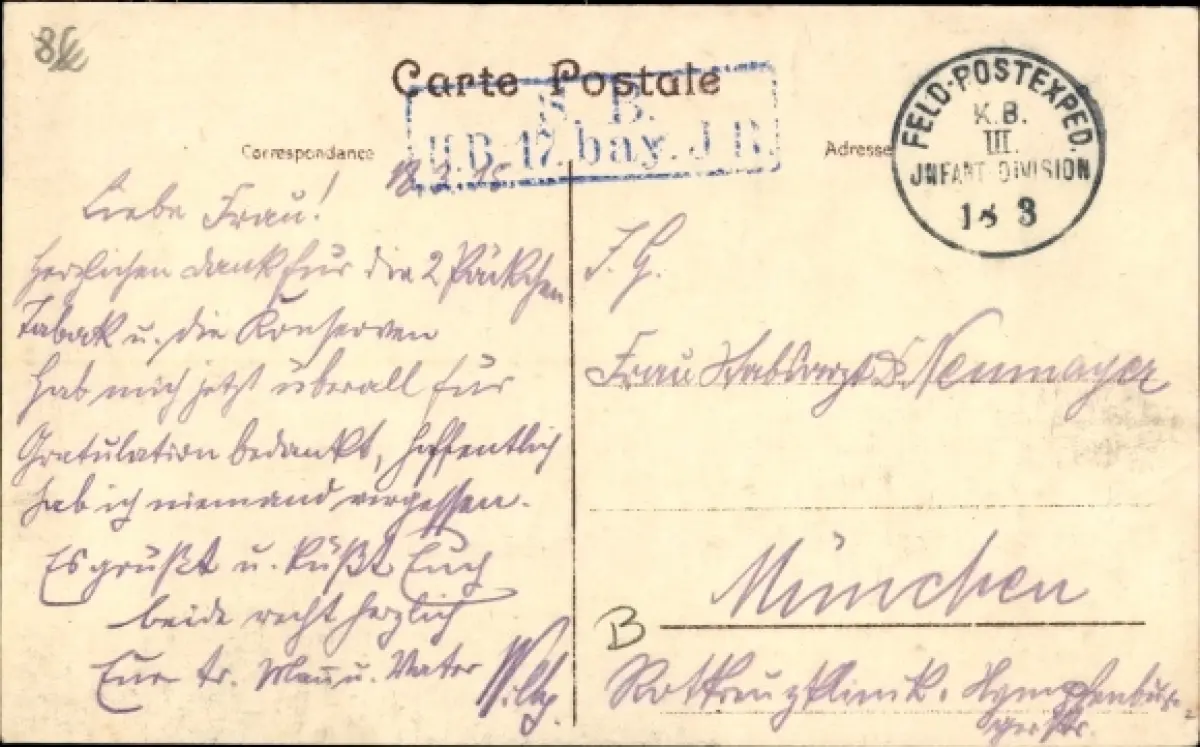 Carte Postale
S. B.
II.B. 17. bay. J. R.
Correspondance
Adresse
FELD-POSTEXPED.
K.B.
III.
JNFANT-DIVISION
18 3
18.3.15
Liebe Frau!
Herzlichen Dank für die 2 Päckchen
Tabak u. die Konserven
Hab mich jetzt überall für
Gratulation bedankt, hoffentlich
hab ich niemand vergessen.
Es grüßt u. küßt Euch
beide recht herzlich
Euer tr. Mann u. Vater Willy.
Frau Stabsarzt Dr. Neumayer
München
B
Rotkreuzklinik. Nymphenbur-
gerstr.